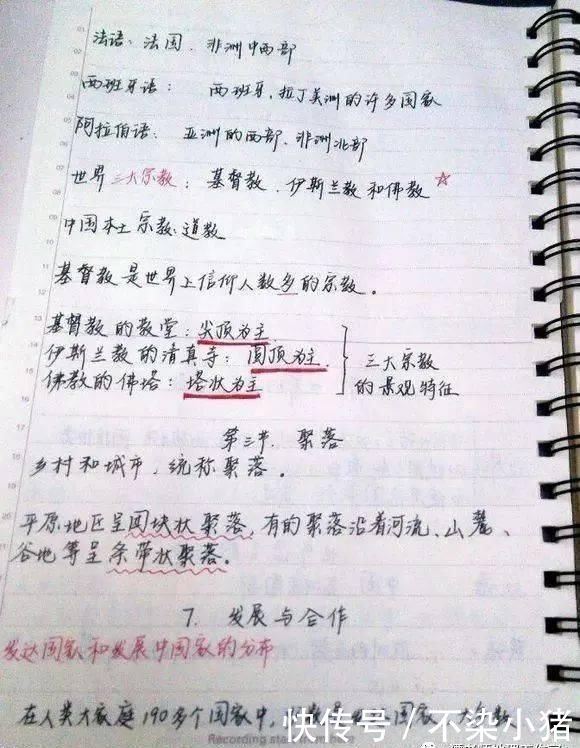 法语：法国、非洲中西部
西班牙语： 西班牙，拉丁美洲的许多国家
阿拉伯语： 亚洲的西部、非洲北部
世界三大宗教：基督教、伊斯兰教和佛教 ☆
中国本土宗教：道教
基督教是世界上信仰人数多的宗教。
基督教的教堂：尖顶为主
伊斯兰教的清真寺：圆顶为主
佛教的佛塔：塔状为主
三大宗教
的景观特征
第三节 聚落
乡村和城市，统称聚落。
平原地区呈团块状聚落，有的聚落沿着河流、山麓、
谷地等呈条带状聚落。
7. 发展与合作
发达国家和发展中国家的分布
在人类大家庭190多个国家中，
快传号／不染小猪
Recording